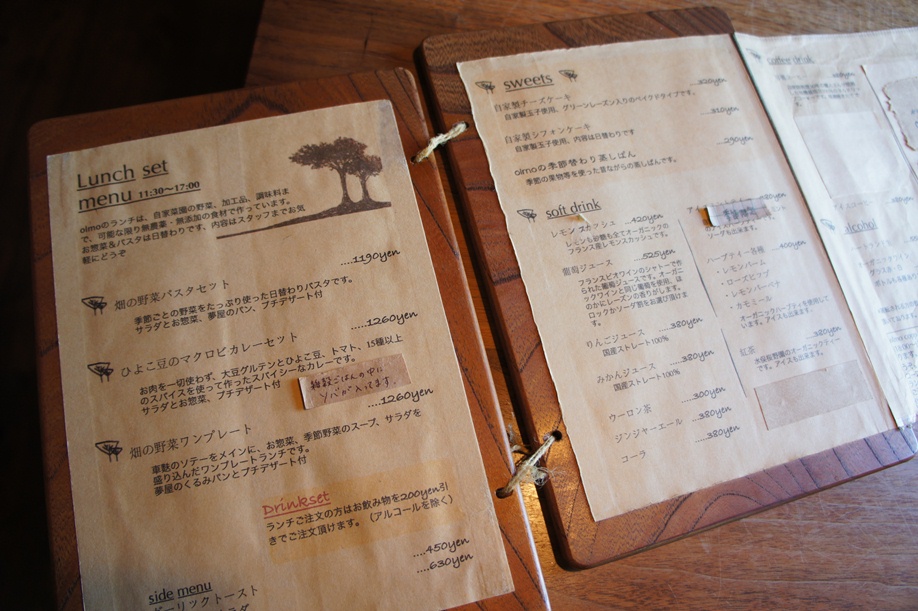 Lunch set
menu 11:30～17:00
olmoのランチは、自家菜園の野菜、加工品、調味料ま
で、可能な限り無農薬・無添加の食材で作っています。
お惣菜&パスタは日替わりです、内容はスタッフまでお気
軽にどうぞ
....1190yen
畑の野菜パスタセット
季節ごとの野菜をたっぷり使った日替わりパスタです。
サラダとお惣菜、夢屋のパン、プチデザート付
....1260yen
ひよこ豆のマクロビカレーセット
お肉を一切使わず、大豆グルテンとひよこ豆、トマト、15種以上
のスパイスを使って作ったスパイシーなカレーです。
サラダとお惣菜、プチデザート付
雑穀ごはんの中に
ソバが入ってます。
....1260yen
畑の野菜ワンプレート
車麩のソテーをメインに、お惣菜、季節野菜のスープ、サラダを
盛り込んだワンプレートランチです。
夢屋のくるみパンとプチデザート付
Drinkset
ランチご注文の方はお飲み物を200yen引
きでご注文頂けます。(アルコールを除く)
....450yen
....630yen
side menu
ガーリックトースト
sweets
自家製チーズケーキ ...320yen
自家製玉子使用、グリーンレーズン入りのベイクドタイプです。
自家製シフォンケーキ ...310yen
自家製玉子使用、内容は日替わりです
olmoの季節替わり蒸しぱん ...290yen
季節の果物等を使った昔ながらの蒸しぱんです。
soft drink
レモンスカッシュ ...420yen
レモンも砂糖も全てオーガニックの
フランス産レモンスカッシュです。
葡萄ジュース ...525yen
フランスビオワインのシャトーで作
られた葡萄ジュースです。オーガニ
ックワインと同じ葡萄を使用、ほ
のかにレーズンの香りがします。
ロックかソーダ割をお選び頂けま
す。
りんごジュース ...380yen
国産ストレート100%
みかんジュース ...380yen
国産ストレート100%
ウーロン茶 ...300yen
ジンジャーエール ...380yen
コーラ ...380yen
ソーダも出来ます。
ハーブティー各種 ...400yen
・レモンバーム
・ローズヒップ
・レモンバーベナ
・カモミール
オーガニックハーブティを使用して
います。アイスも出来ます。
紅茶 ...380yen
水俣桜野園のオーガニックティー
です。アイスも出来ます。
coffee drink
alcohol